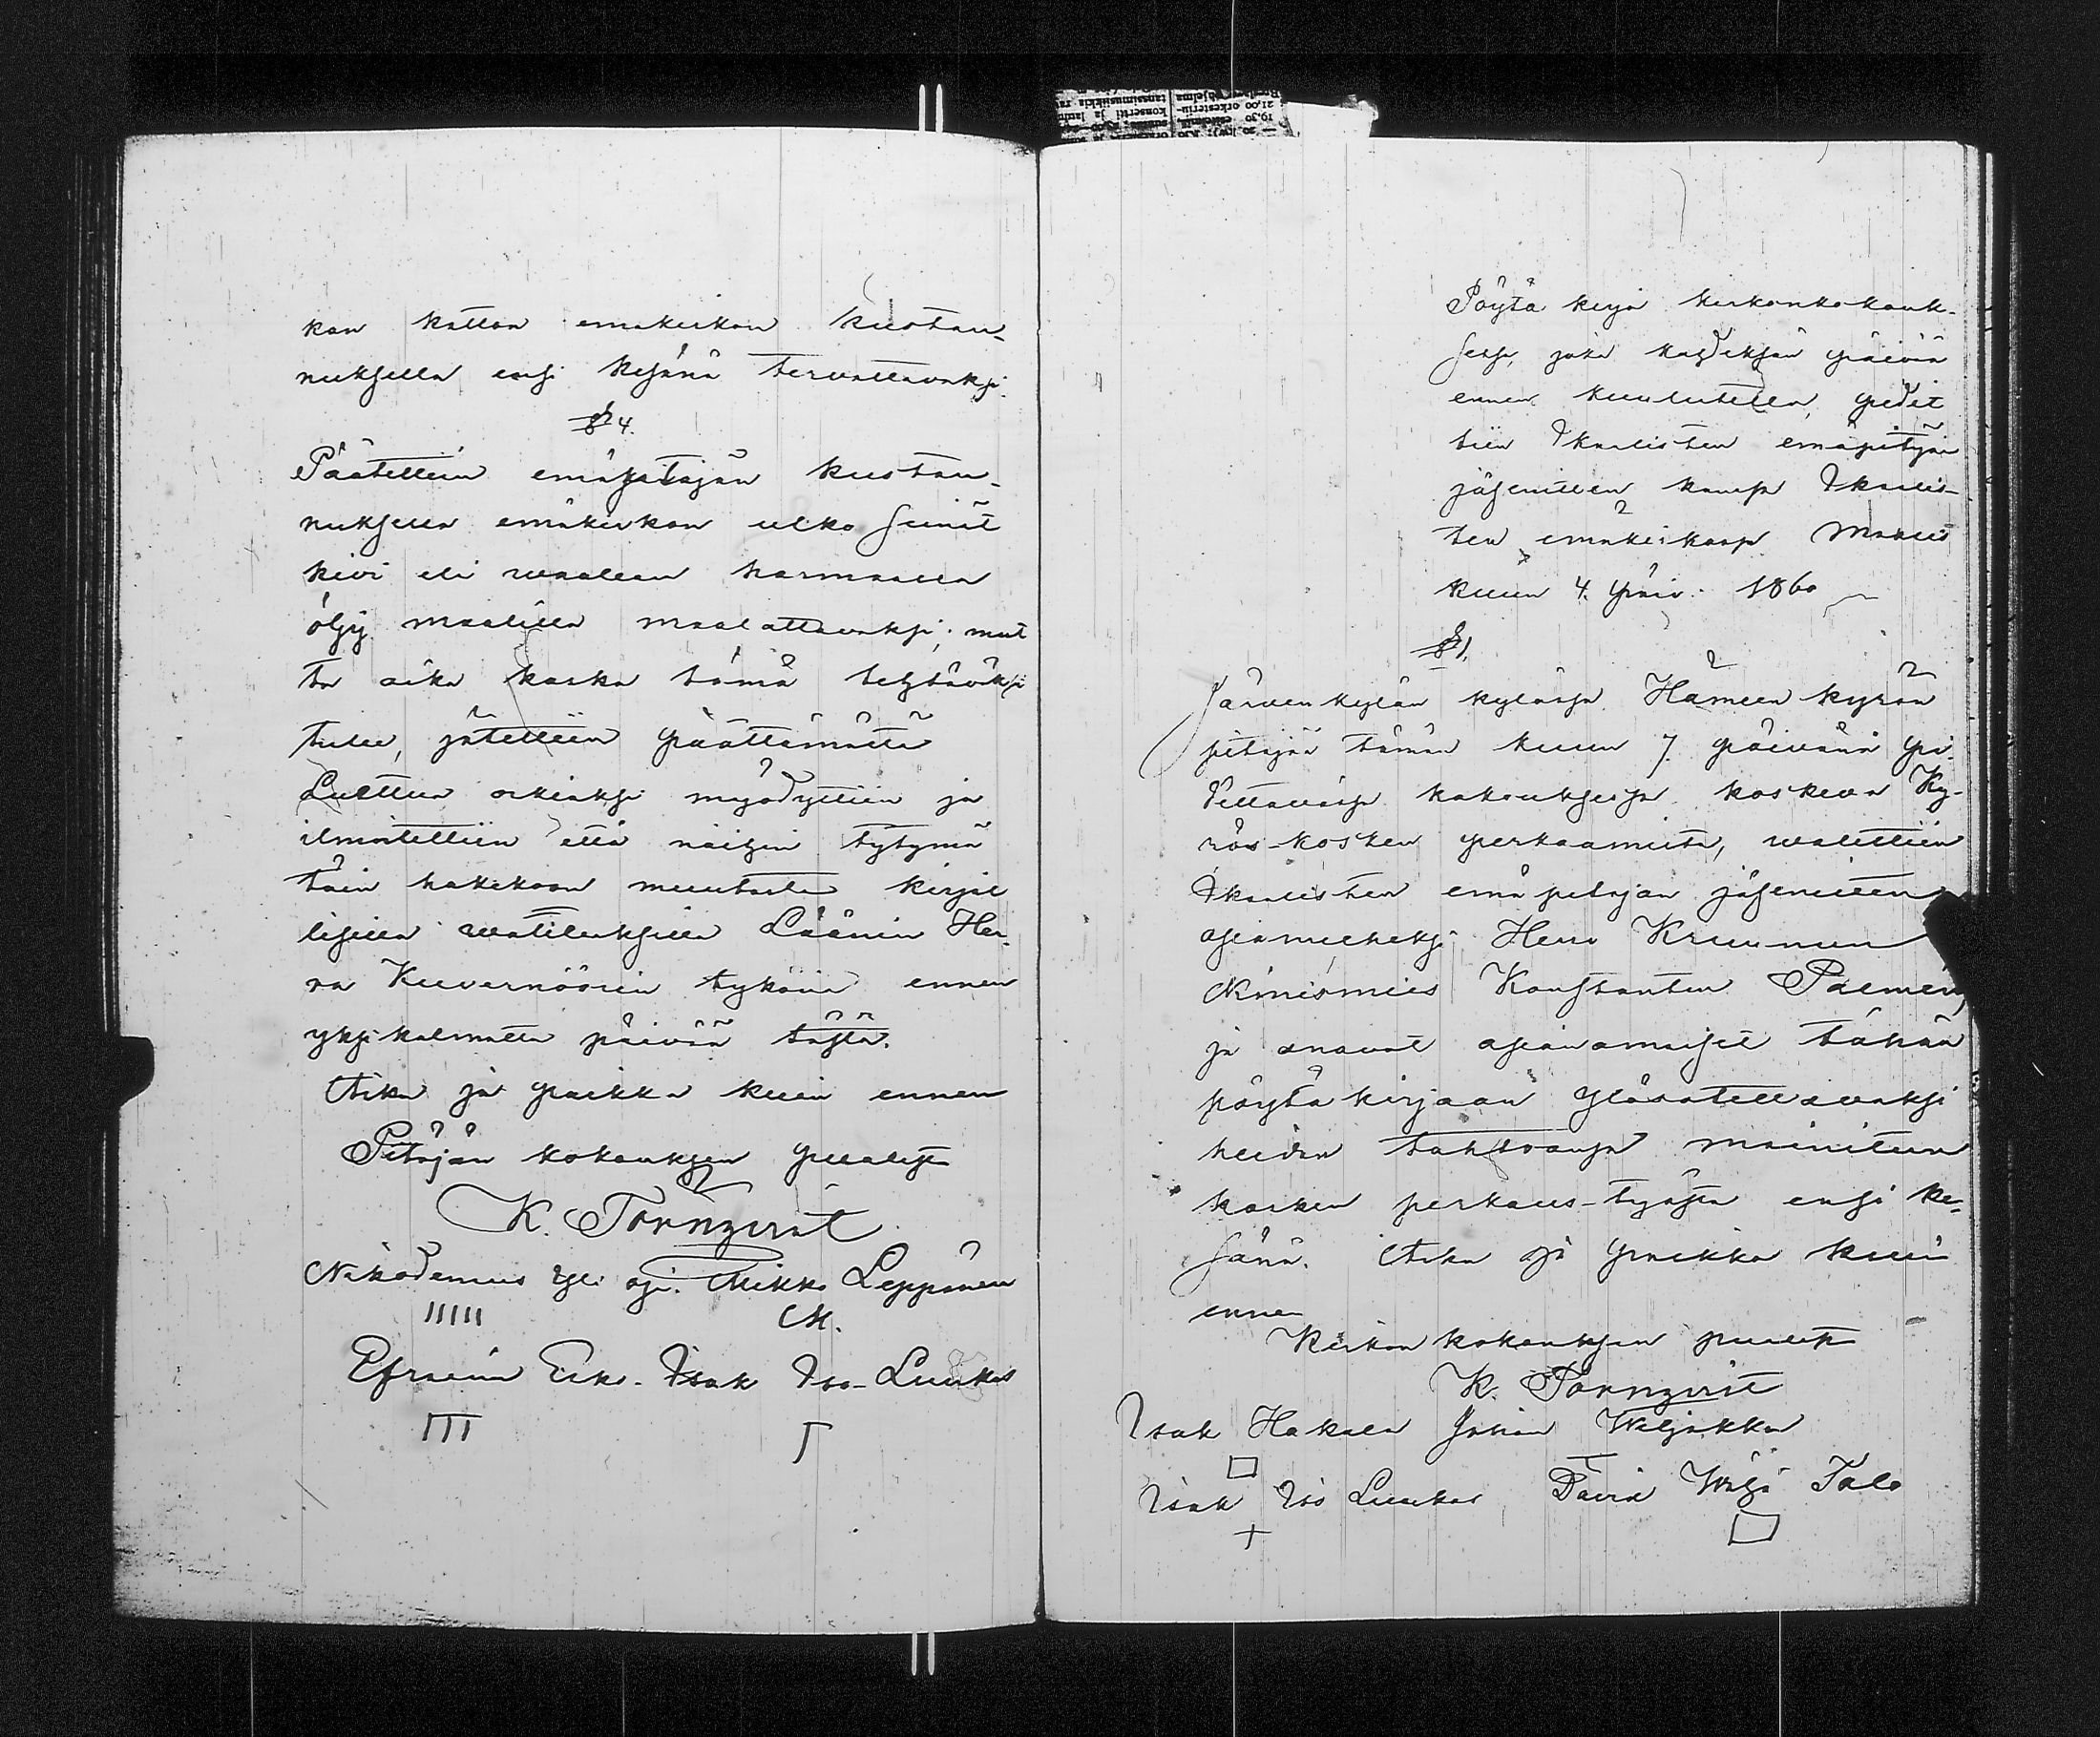 kon katton emäkirkon kustan-
nuksella ensi kesänä tervattavaksi.
§ 4.
Päätettiin emäpitäjän kustan-
nuksella emäkirkon ulko seinät
kivi eli waalean harmaalla
öljy maalilla maalattavaksi; mut
ta aika koska tämä tehtäväksi
tulee, jätettiin päättämättä
Luettua oikiaksi myödyttiin ja
ilmoitettiin että näihin tytymä
töin hakekoon muutosta kirjal
lisilla walituksilla Läänin Her-
ra Kuvernöörin tykönä ennen
yksikolmatta päivää tästä.
Aika ja paikka kuin ennen
Pitäjän kokouksen puolesta
K. Törnqvist
Nikodemus Yli Mikko Leppänen
IIIII M.
Efraim Erk. Isak Iso-Luukas
III
Pöytä kirja kirkonkokouk-
sesa, joka kahdeksan päivää
ennen kuulutettu, pidet
tiin Ikalisten emäpitäjän
jäsenitten kansa Ikalis-
ten emäkirkosa Maalis
kuun 4. päiv. 1860
§ 1.
Järvenkylän kyläsä Hämeen kyrön
pitäjää tämän kuun 7. päivänä pi-
dettäväsä kokouksesa koskeva Ky-
rös-kosken perkaamista, walittiin
Ikalisten emä pitäjän jäsenitten
asiamieheksi Herra Kruunun
Nimismies Konstantin Palmén,
ja anovat asianomaiset tähän
pöytäkirjaan ylösotettavaksi
heidän tahtoansa mainitun
kosken perkaus-työstä ensi ke-
sänä. Aika ja paikka kuin
ennen
Kirkon kokouksen puolesta
K. Törnqvist
Isak Hakala Johan Weljakka
Isak Iso Luukas David Wäljä Talo
+